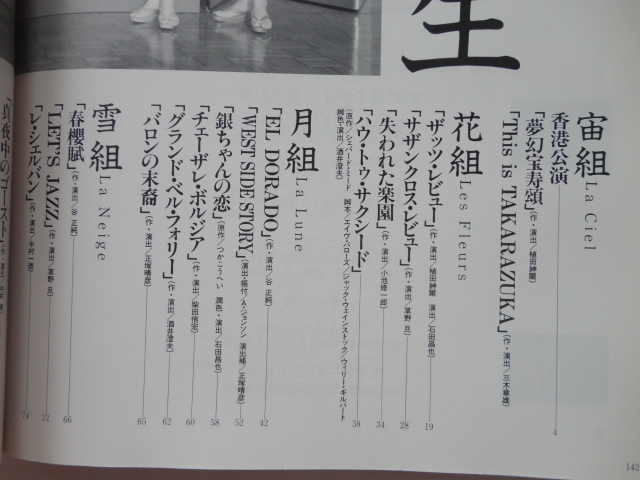 生
宙組 La Ciel
香港公演
「夢幻宝寿頌」(作・演出/植田紳爾)
「This is TAKARAZUKA」(作・演出/三木章雄) 4
花組 Les Fleurs
「ザッツ・レビュー」(作・演出/植田紳爾 演出/石田昌也) 19
「サザンクロス・レビュー」(作・演出/草野 旦) 28
「失われた楽園」(作・演出/小池修一郎) 34
「ハウ・トゥ・サクシード」 38
(原作/シェパード・ミード 脚本/エイブ・バローズ/ジャック・ウェインストック/ウィリー・ギルバート
脚色・演出/酒井澄夫)
月組 La Lune
「EL DORADO」(作・演出/谷 正純) 42
「WEST SIDE STORY」(演出・振付/A・ジョンソン 演出補/正塚晴彦) 52
「銀ちゃんの恋」(原作/つかこうへい 潤色・演出/石田昌也) 58
「チェーザレ・ボルジア」(作・演出/柴田侑宏) 60
「グランド・ベル・フォリー」(作・演出/酒井澄夫) 62
「バロンの末裔」(作・演出/正塚晴彦) 65
雪組 La Neige
「春櫻賦」(作・演出/谷 正純) 66
「LET'S JAZZ」(作・演出/草野 旦) 72
「レ・シェルバン」(作・演出/中村一徳) 74
「真夜中のゴースト」(作・演出/中村
142